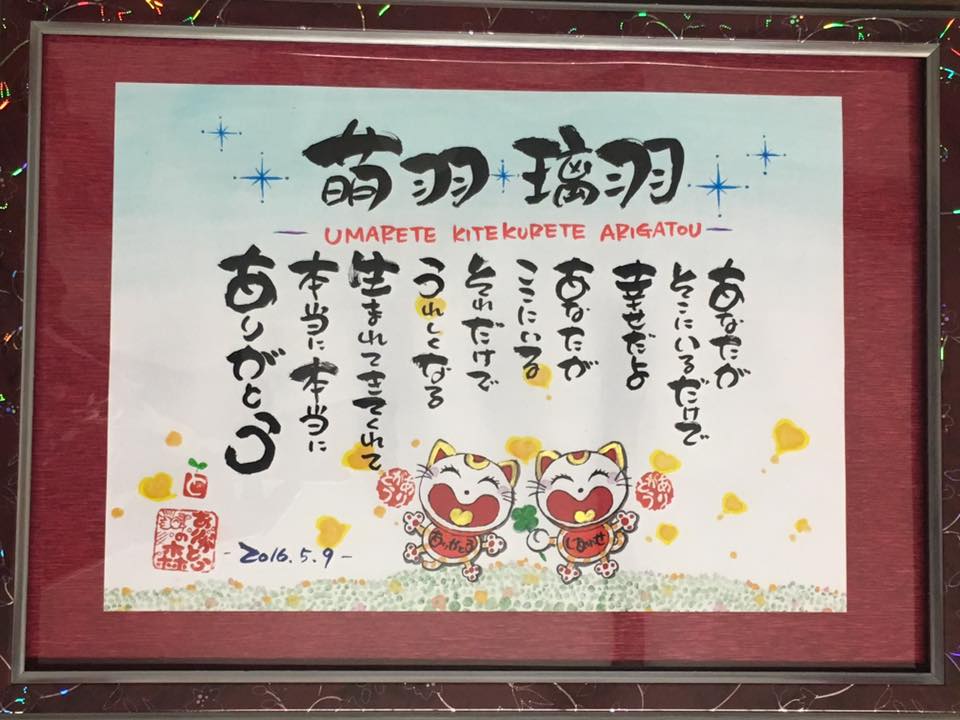 萌羽 璃羽
UMARETE KITEKURETE ARIGATOU
あなたが
そこにいるだけで
幸せだよ
あなたが
ここにいる
それだけで
うれしくなる
生まれてきてくれて
本当に本当に
ありがとう
ありがとう
ありがとう
ありがとう
しあわせ
-2016.5.9-